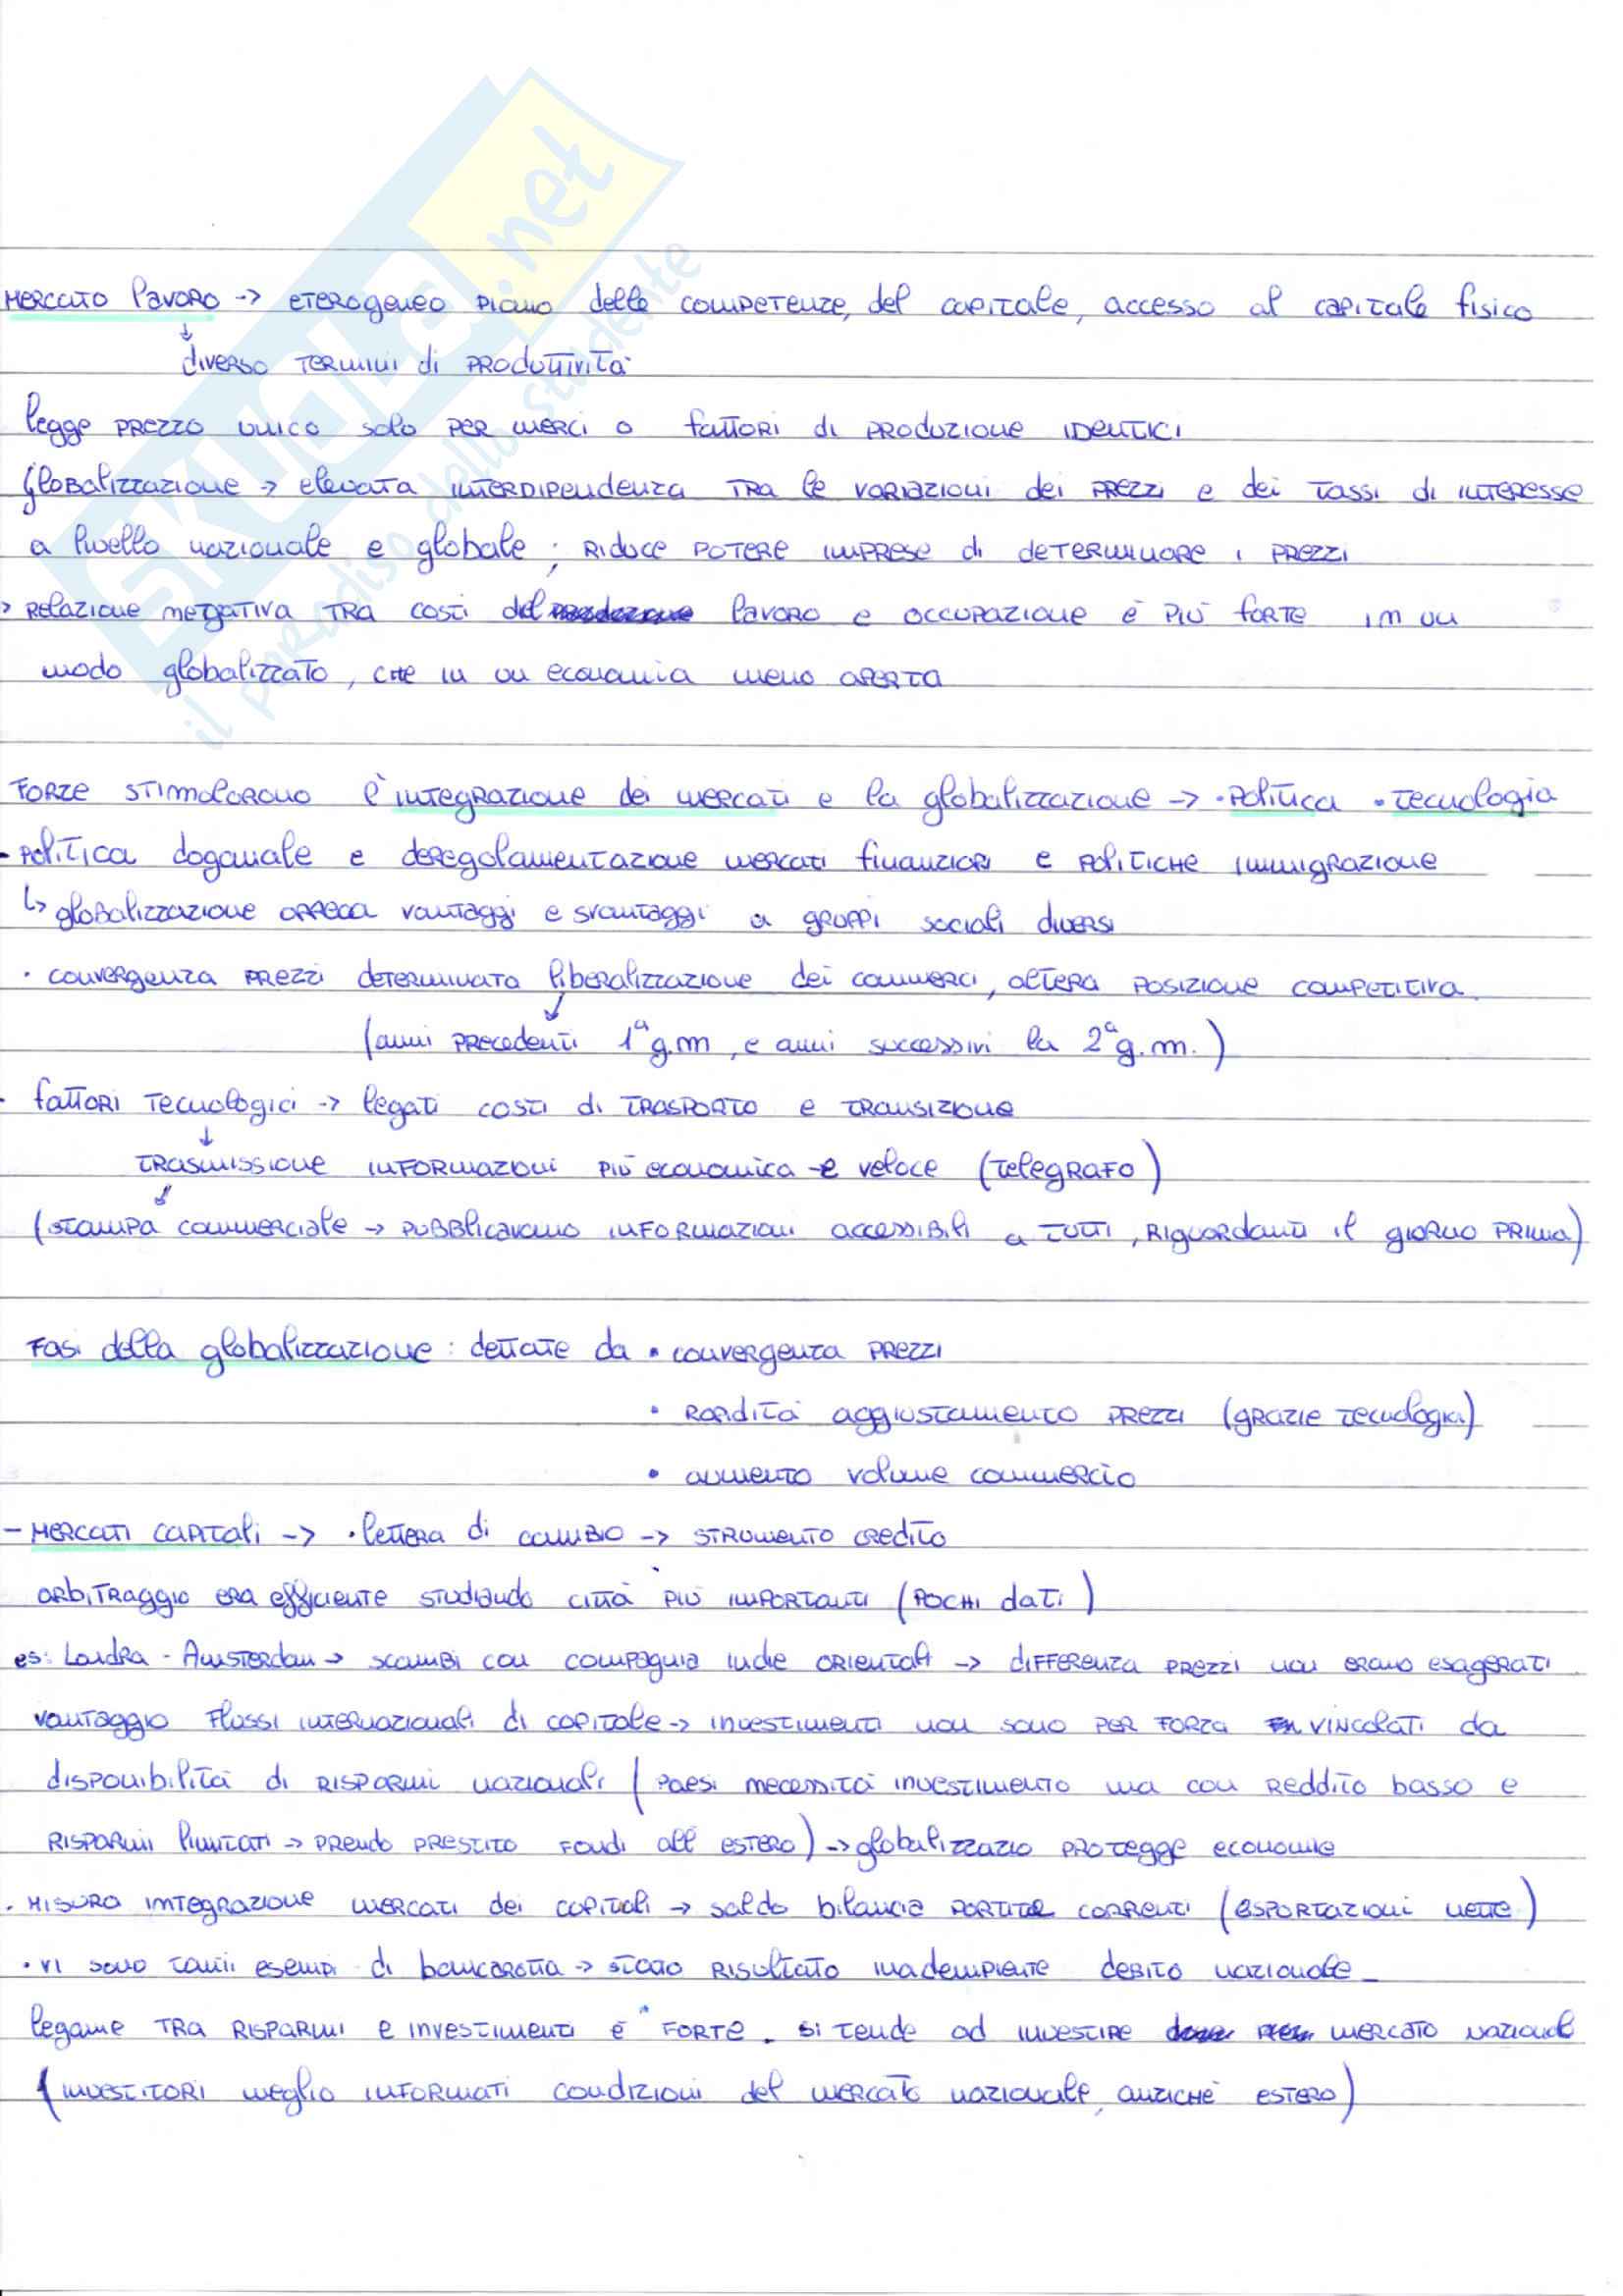 SKUOLA.net
il paradiso dello studente
MERCATO lavoro -> ETEROGENEO PIANO delle COMPETENZE, del CAPITALE, ACCESSO al CAPITALE fisico
↓
diverso TERMINI di PRODUTTIVITÀ
legge PREZZO UNICO solo PER MERCI o fattori di PRODUZIONE IDENTICI
Globalizzazione -> elevata INTERDIPENDENZA TRA le VARIAZIONI dei PREZZI e dei TASSI di INTERESSE
a livello nazionale e globale; RIDUCE POTERE IMPRESE di DETERMINARE i PREZZI
> RELAZIONE NEGATIVA TRA COSTI del lavoro e OCCUPAZIONE è PIÙ FORTE IN UN
modo globalizzato, CHE IN UN ECONOMIA MENO APERTA
FORZE STIMOLARONO l'INTEGRAZIONE dei MERCATI e la globalizzazione -> • POLITICA • TECNOLOGIA
- POLITICA doganale e deregolamentazione MERCATI finanziari e POLITICHE IMMIGRAZIONE
↳ globalizzazione ARRECA vantaggi e svantaggi a GRUPPI sociali diversi
• convergenza PREZZI determinata liberalizzazione dei commerci, altera POSIZIONE COMPETITIVA.
↓
(anni PRECEDENTI 1ª g.m, e anni successivi la 2ª g.m.)
- fattori Tecnologici -> legati costi di TRASPORTO e TRANSIZIONE
↓
TRASMISSIONE INFORMAZIONI PIÙ economica e veloce (TELEGRAFO)
↓
(STAMPA commerciale -> PUBBLICAVANO INFORMAZIONI accessibili a TUTTI, RIGUARDANTI il GIORNO PRIMA)
FASI della globalizzazione: dettate da • convergenza PREZZI
• RAPIDITÀ aggiustamento PREZZI (GRAZIE TECNOLOGIA)
• aumento volume commercio
- MERCATI CAPITALI -> • lettera di CAMBIO -> STRUMENTO CREDITO
ARBITRAGGIO ERA efficiente studiando CITTÀ PIÙ IMPORTANTI (POCHI DATI)
es: Londra - Amsterdam -> scambi con compagnia Indie ORIENTALI -> DIFFERENZA PREZZI non erano esagerati
vantaggio Flussi internazionali di capitale -> investimenti non sono PER FORZA VINCOLATI da
disponibilità di RISPARMI nazionali (PAESI necessità investimento ma con REDDITO basso e
RISPARMI limitati -> PRENDO PRESTITO FONDI all ESTERO) -> globalizzazio PROTEGGE economie
• MISURA INTEGRAZIONE MERCATI dei capitali -> saldo bilancia PARTITE CORRENTI (ESPORTAZIONI NETTE)
• VI sono tanti esempi di bancarotta -> STATO RISULTATO INADEMPIENTE DEBITO nazionale
legame TRA RISPARMI e investimenti è FORTE. SI TENDE ad INVESTIRE MERCATO NAZIONALE
(INVESTITORI meglio INFORMATI condizioni del MERCATO nazionale, anziché ESTERO)